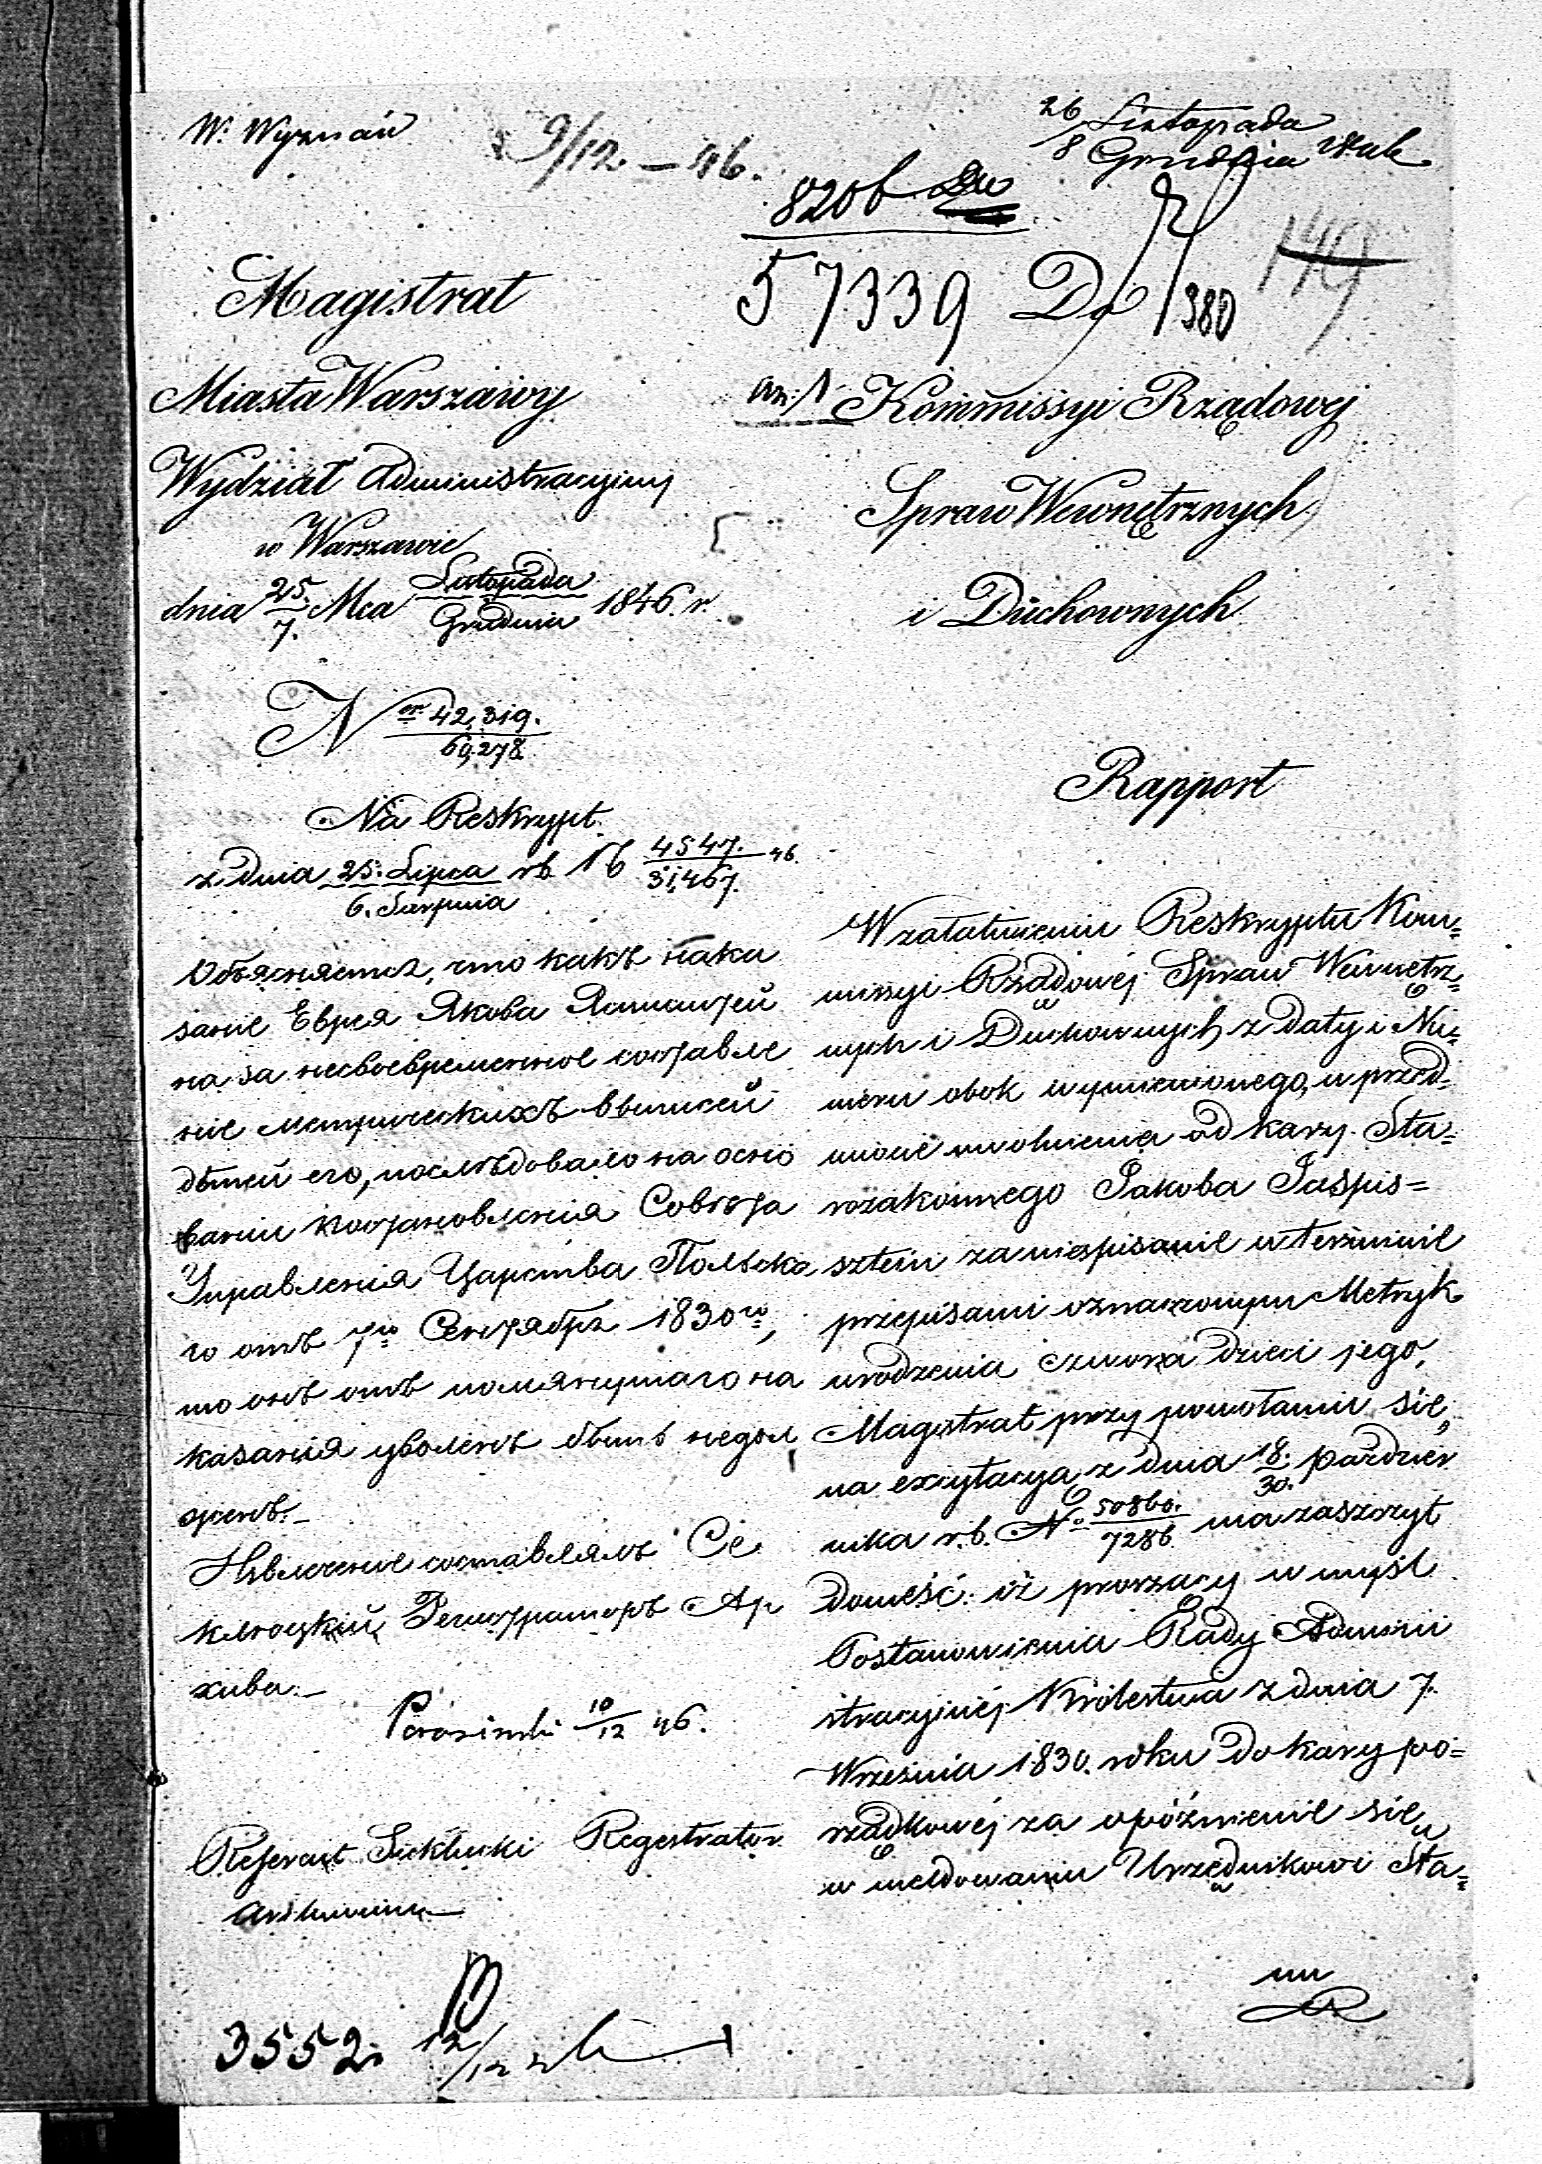 W. Wyznań
9/12 – 46.
26 Listopada
8 Grudnia
8206
57339
149
380
Magistrat
Miasta Warszawy
Wydział Administracyjny
w Warszawie
dnia 25/7. Mca Listopada/Grudnia 1846. r.
Do
Kommissyi Rządowej
Spraw Wewnętrznych
i Duchownych
Ner 42,319./69,278
Rapport
Na Reskrypt
z dnia 25. Lipca/6. Sierpnia rb № 4547./31,467. 46.
Объясняетъ, что какъ нака
заніе Еврея Якова Яшпиштей
на за несвоевременное составле
ніе метрическихъ выписей
дѣтей его, послѣдовало на осно
ваніи постановленія Совѣта
Управленія Царства Польска
го отъ 7го Сентября 1830го,
то онъ отъ помянутаго на
казанія уволенъ быть недол
женъ.–
Извлеченіе составлялъ Се
клюцкій, Регистраторъ Ар
хива.–
10/12 46.
Referent Siekłucki Regestrator
3552.
12/12
W załatwieniu Reskryptu Kom=
missyi Rządowéj Spraw Wewnętrz=
nych i Duchownych z daty i Nu=
meru obok wymienionego, w przed=
miocie uwolnienia od kary Sta=
rozakonnego Jakoba Jaspis=
sztein za niespisanie w terminie
przepisami oznaczonym Metryk
urodzenia czworga dzieci jego,
Magistrat przy powołaniu się
na excytacyą z dnia 18./30. Paździer
nika r.b. No 50860./7286 ma zaszczyt
donieść: iż proszący w myśl
Postanowienia Rady Admini
stracyjnéj Królestwa z dnia 7.
Września 1830. roku do kary po=
rządkowéj za opóźnienie się
w meldowaniu Urzędnikowi Sta=